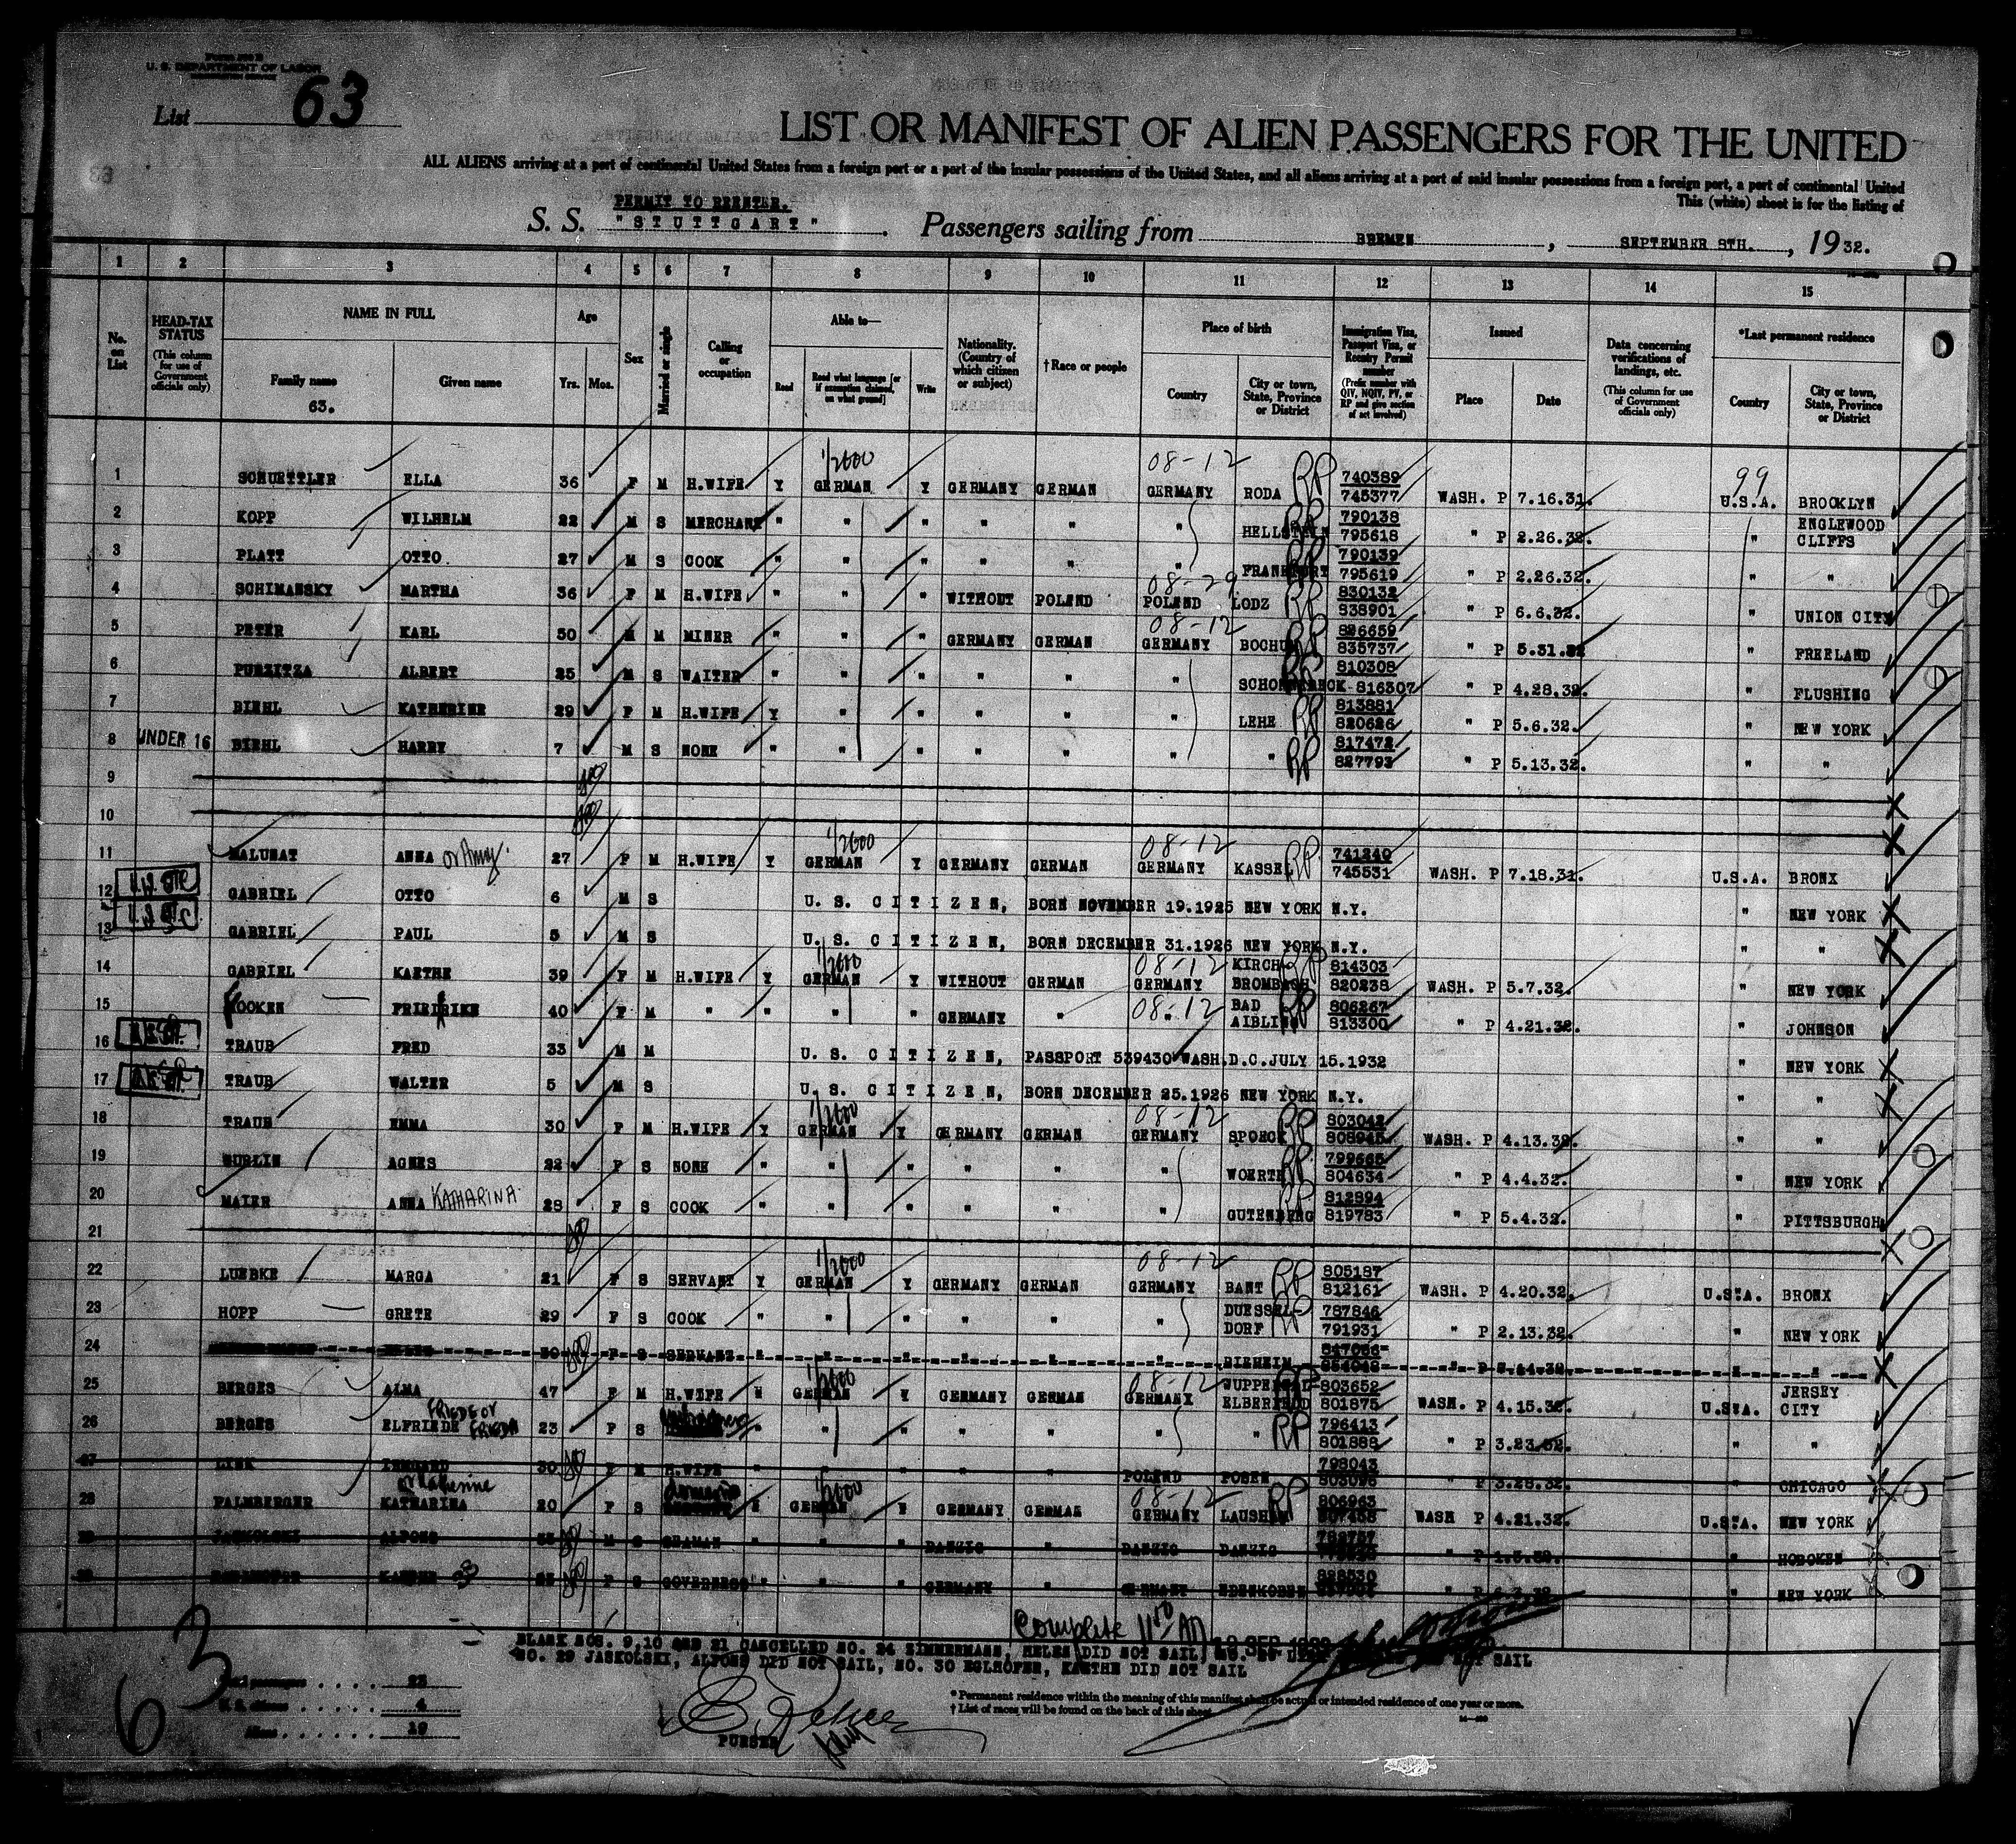 Form 500 B
U. S. DEPARTMENT OF LABOR
List 63
LIST OR MANIFEST OF ALIEN PASSENGERS FOR THE UNITED
ALL ALIENS arriving at a port of continental United States from a foreign port or a port of the insular possessions of the United States, and all aliens arriving at a port of said insular possessions from a foreign port, a port of continental United
This (white) sheet is for the listing of
PERMIT TO REENTER.
S. S. "STUTTGART". Passengers sailing from BREMEN, SEPTEMBER 8TH., 1932.
1 2 3 4 5 6 7 8 9 10 11 12 13 14 15
No. on List
HEAD-TAX STATUS (This column for use of Government officials only)
NAME IN FULL
Family name
63.
Given name
Age
Yrs. Mos.
Sex
Married or single
Calling or occupation
Able to—
Read
Read what language [or if exemption claimed, on what ground]
Write
Nationality. (Country of which citizen or subject)
†Race or people
Place of birth
Country
City or town, State, Province or District
Immigration Visa, Passport Visa, or Reentry Permit number (Prefix number with QIV, NQIV, PV, or RP and give section of act involved)
Issued
Place
Date
Data concerning verifications of landings, etc. (This column for use of Government officials only)
*Last permanent residence
Country
City or town, State, Province or District
1 SCHUETTLER ELLA 36 F M H.WIFE Y GERMAN Y GERMANY GERMAN 08-12 GERMANY RODA RP 740389 745377 WASH. P 7.16.31. 99 U.S.A. BROOKLYN
2 KOPP WILHELM 22 M S MERCHANT " " " " " " HELLSTEIN RP 790138 795618 " P 2.26.32. " ENGLEWOOD CLIFFS
3 PLATT OTTO 27 M S COOK " " " " " " FRANKFURT RP 790139 795619 " P 2.26.32. " "
4 SCHIMANSKY MARTHA 36 F M H.WIFE " " " WITHOUT POLEND 08-29 POLEND LODZ RP 830132 838901 " P 6.6.32. " UNION CITY
5 PETER KARL 50 M M MINER " " " GERMANY GERMAN 08-12 GERMANY BOCHUM RP 826659 835737 " P 5.31.32 " FREELAND
6 PURZITZA ALBERT 25 M S WAITER " " " " " " RP 810308 816307 " P 4.28.32. " FLUSHING
7 BIEHL KATHERINE 29 F M H.WIFE Y " " " " " LEHE RP 813881 820626 " P 5.6.32. " NEW YORK
8 UNDER 16 BIEHL HARRY 7 M S NONE " " " " " " " RP 817472 827793 " P 5.13.32. " "
9
10
11 MALUNAT ANNA or Amy. 27 F M H.WIFE Y GERMAN Y GERMANY GERMAN 08-12 GERMANY KASSEL RP 741240 745531 WASH. P 7.18.31. U.S.A. BRONX
12 GABRIEL OTTO 6 M S U. S. CITIZEN, BORN NOVEMBER 19.1925 NEW YORK N.Y. " NEW YORK
13 GABRIEL PAUL 5 M S U. S. CITIZEN, BORN DECEMBER 31.1926 NEW YORK N.Y. " "
14 GABRIEL KAETHE 39 F M H.WIFE Y GERMAN Y WITHOUT GERMAN 08-12 GERMANY KIRCH- BROMBACH RP 814303 820238 WASH. P 5.7.32. " NEW YORK
15 KOOKEN FRIEDRIKE 40 F M " " " " GERMANY " 08-12 " BAD AIBLING RP 806267 813300 " P 4.21.32. " JOHNSON
16 TRAUB FRED 33 M M U. S. CITIZEN, PASSPORT 539430 WASH.D.C.JULY 15.1932 " NEW YORK
17 TRAUB WALTER 5 M S U. S. CITIZEN, BORN DECEMBER 25.1926 NEW YORK N.Y. " "
18 TRAUB EMMA 30 F M H.WIFE Y GERMAN Y GERMANY GERMAN 08-12 GERMANY SPOECK RP 803042 808945 WASH. P 4.13.32. " "
19 WURLIN AGNES 22 F S NONE " " " " " " WOERTH RP 799665 804634 " P 4.4.32. " NEW YORK
20 MAIER ANNA KATHARINA 28 F S COOK " " " " " " GUTENBERG RP 812894 819783 " P 5.4.32. " PITTSBURGH
21
22 LUEBKE MARGA 21 F S SERVANT Y GERMAN Y GERMANY GERMAN 08-12 GERMANY BANT RP 805187 812161 WASH. P 4.20.32. U.S.A. BRONX
23 HOPP GRETE 29 F S COOK " " " " " " DUESSEL- DORF RP 787846 791931 " P 2.13.32. " NEW YORK
24 F S SERVANT " " " " " " 847066
25 BERGES ALMA 47 F M H.WIFE " GERMAN " GERMANY GERMAN 08-12 GERMANY WUPPERTAL- ELBERFELD 803652 801875 WASH. P 4.15.32. U.S.A. JERSEY CITY
26 BERGES ELFRIEDE FRIEDE or FRIEDA 23 F S " " " " " " RP 796413 801888 " P 3.23.32. " "
27 LINK IRMGARD 30 F M H.WIFE " " " " " POLEND POSEN 798043 803096 " P 3.28.32. " CHICAGO
28 PALMBERGER KATHARINA or Katherine 20 F S GERMAN GERMANY GERMAN 08-12 GERMANY RP 806963 WASH P 4.21.32. U.S.A. NEW YORK
29 JASKOLSKI ALFONS M S SEAMAN " " " DANZIG " DANZIG DANZIG " HOBOKEN
30 KAETHE F S GOVERNESS " " " GERMANY " GERMANY EDENKOBEN 828530 " NEW YORK
Complete
BLANK NOS. 9,10 AND 21 CANCELLED NO. 24 ZIMMERMANN, HELEN DID NOT SAIL, NOT SAIL
NO. 29 JASKOLSKI, ALFONS DID NOT SAIL, NO. 30 EGLHOFER, KAETHE DID NOT SAIL
63
passengers 23
U. S. citizens 4
Aliens 19
PURSER
* Permanent residence within the meaning of this manifest shall be actual or intended residence of one year or more.
† List of races will be found on the back of this sheet.